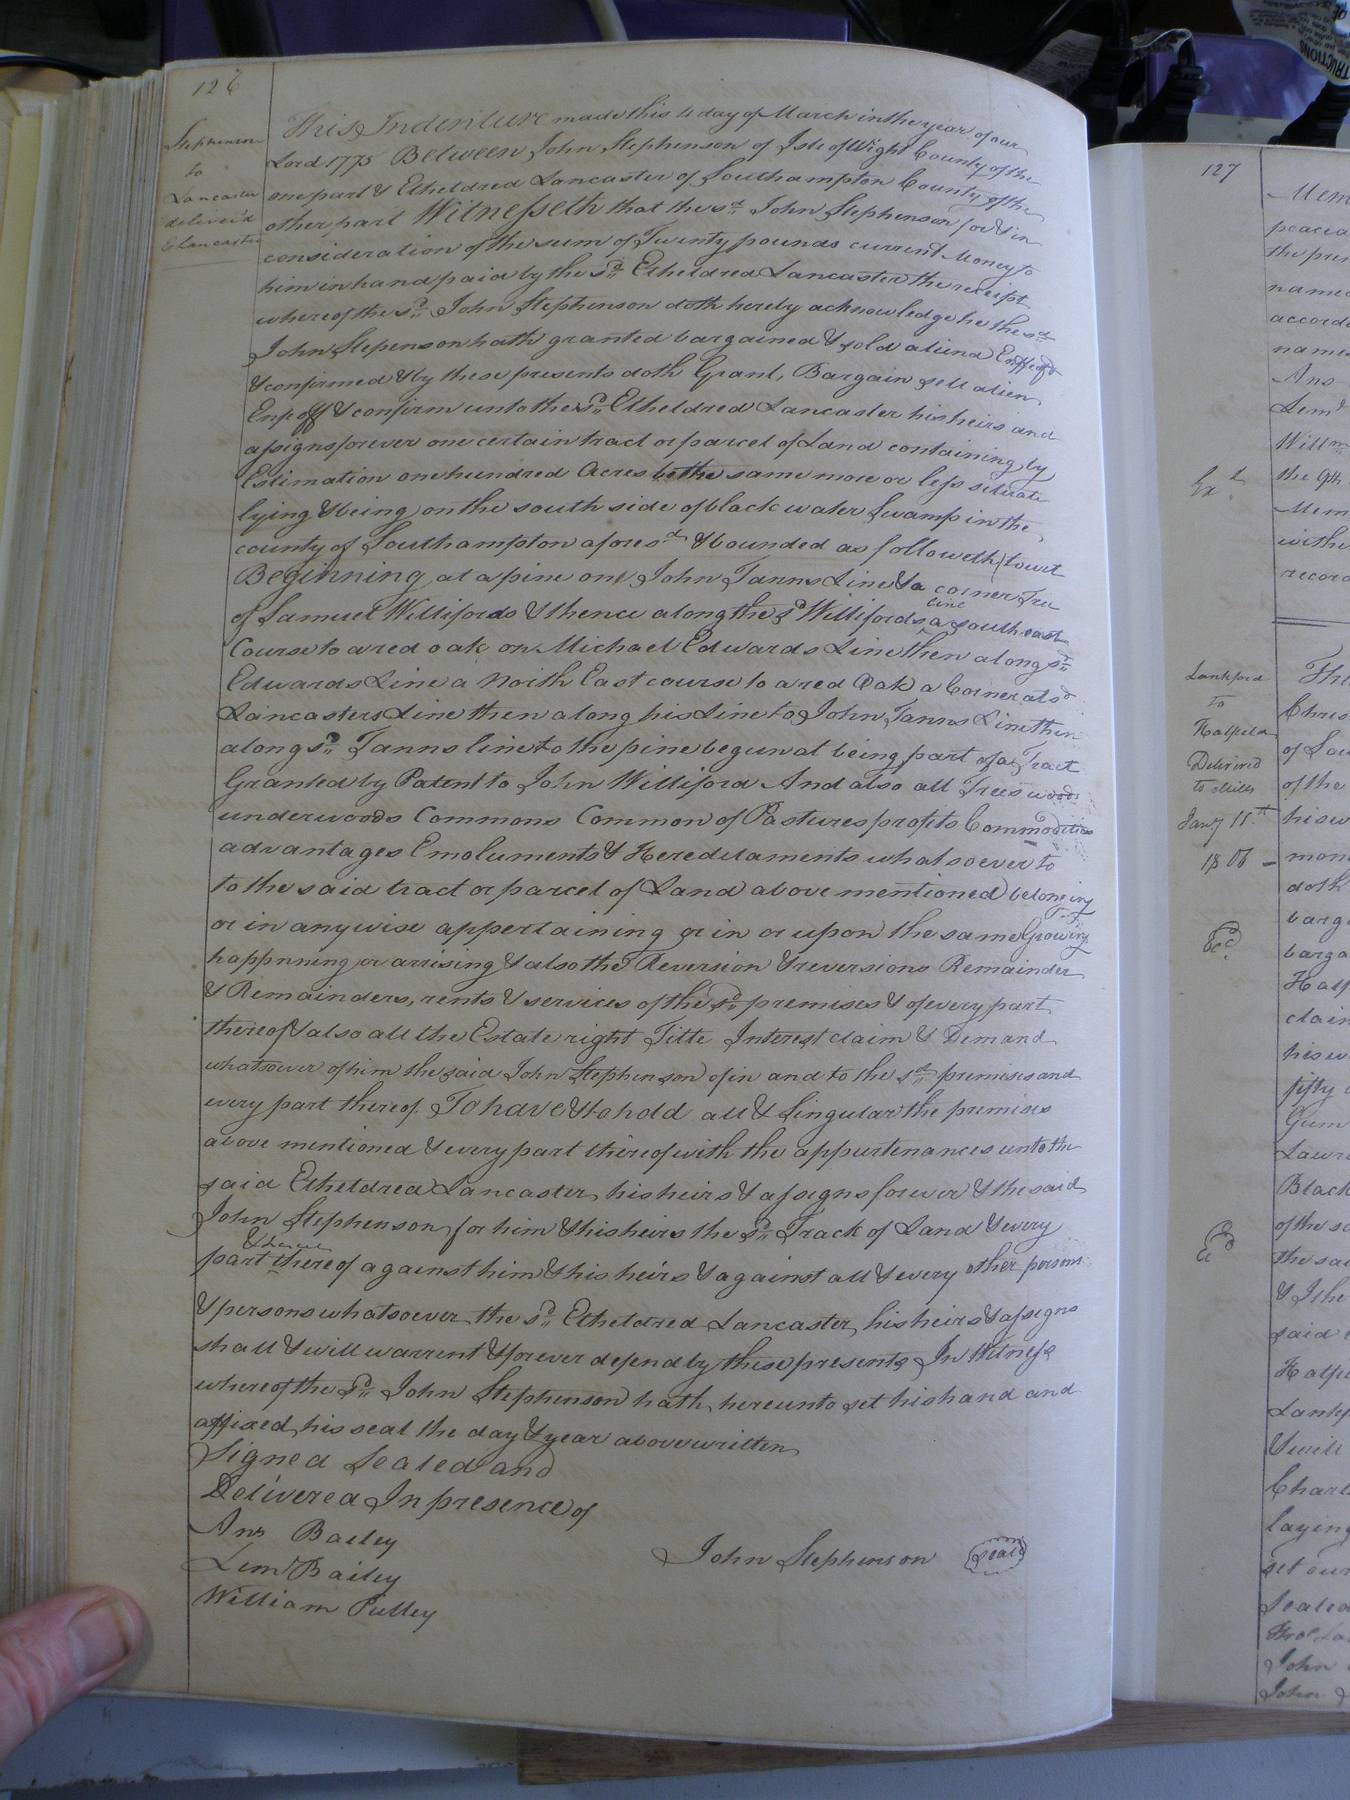 126
Stephenson
to
Lancaster
deliver'd
E Lancaster
This Indenture made this 4 day of March in the year of our
Lord 1775 Between John Stephenson of Isle of Wight County of the
one part & Etheldred Lancaster of Southampton County of the
other part Witnesseth that the sd. John Stephenson for & in
consideration of the sum of Twenty pounds current Money to
him in hand paid by the sd. Etheldred Lancaster the receipt
whereof the sd. John Stephenson doth hereby acknowledge he the sd
John Stepenson hath granted bargained & sold aliend Enffeofd
& confirmed & by these presents doth Grant, Bargain sell alien
Enfeoff & confirm unto the sd. Etheldred Lancaster his heirs and
assigns forever one certain tract or parcel of Land containing by
Estimation one hundred Acres be the same more or less setuate
lying & being on the south side of black water Swamp in the
county of Southampton aforesd. & bounded as followeth (towit
Beginning at a pine on John Tanns Line & a corner Tree
of Samuel Willifords & thence along the sd Willifords line a south east
Course to a red oak on Michael Edwards Line then along sd.
Edwards Line a North East course to a red Oak a Corner at sd
Lancasters Line then along his Line to John Tanns Line then
along sd. Tanns line to the pine begun at being part of a Tract
Granted by Patent to John Williford And also all Trees woods
underwoods Commons Common of Pastures profits Commodities
advantages Emoluments & Hereditaments whatsoever to
to the said tract or parcel of Land above mentioned belonging
or in anywise appertaining or in or upon the same Growing
happnning or arrising & also the Reversion & reversions Remainder
& Remainders, rents & services of the sd. premises & of every part
thereof & also all the Estate right Title Interest claim & Demand
whatsoever of him the said John Stephenson of in and to the sd. premises and
every part thereof. To have & to hold all & Singular the premises
above mentioned & every part thereof with the appurtenances unto the
said Etheldred Lancaster his heirs & assigns forever & the said
John Stephenson for him & his heirs the sd. Track of Land & every
part thereof against him & his heirs & against all & every other person
& persons whatsoever the sd. Etheldred Lancaster his heirs & assigns
shall & will warrent & forever defend by these presents In Witness
whereof the sd. John Stephenson hath hereunto set his hand and
affixed his seal the day & year above written
Signed Sealed and
Delivered In presence of
Ans Bailey
Lem Bailey
William Pulley
John Stephenson (seal)
127
Ex.d
Lankford
to
Halfield
Delivered
to Mills
Jany 11th
1806 –
Mem
peacea
the pre
name
accord
name
Ans
Lemd
Willm
the 9th
Mem
withe
record
Thi
Chris
of Sou
of the
his w
mon
doth
barga
barga
Half
clain
his w
fifty
Gum
Lawr
Black
of the s
the sai
& I the
said
Halfi
Lankf
& will
Charl
laying
set our
Sealed
John
John